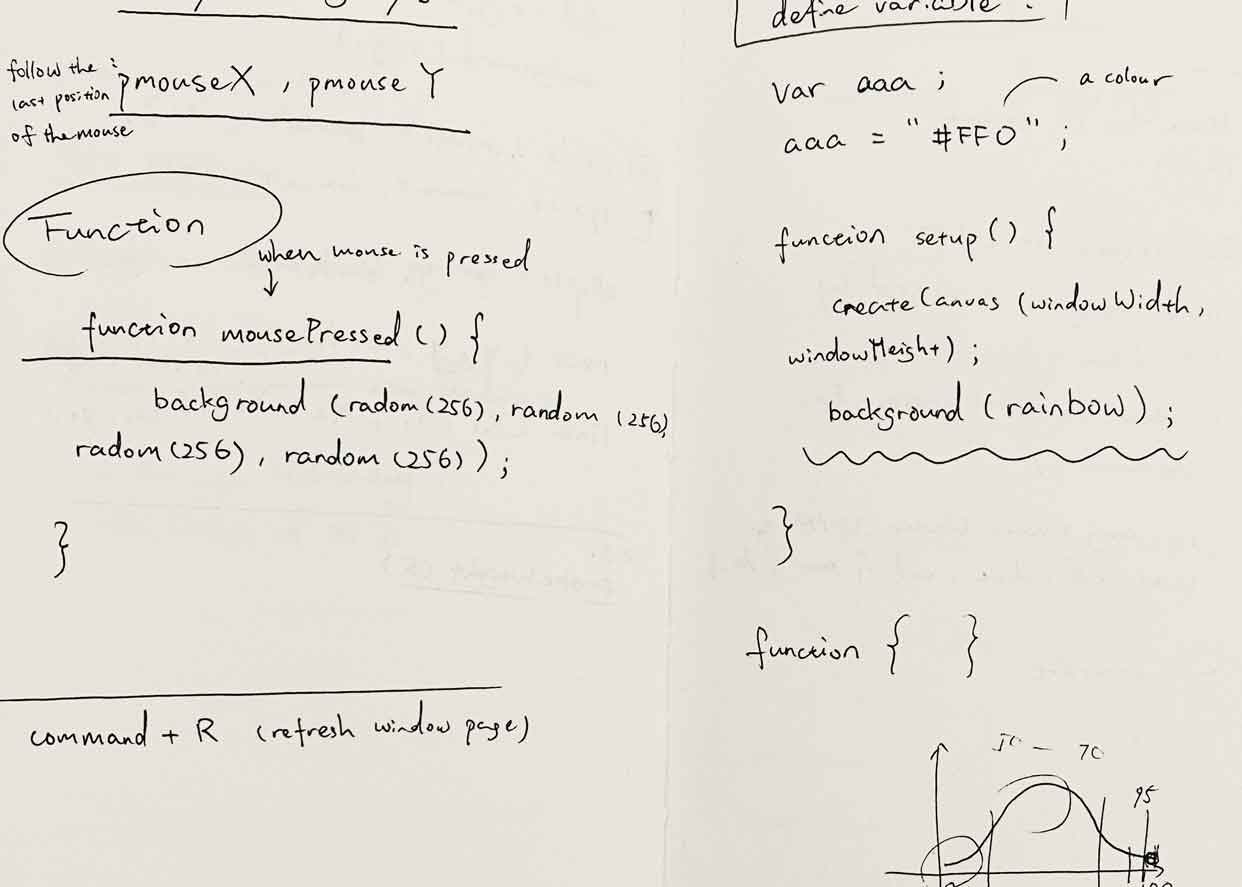 follow the :
last position
of the mouse
pmouseX , pmouse Y
Function
when mouse is pressed
function mousePressed () {
background (radom(256), random (256),
radom (256) , random (256) ) ;
}
command + R (refresh window page)
define variable :
var aaa ;
a colour
aaa = "#FF0" ;
function setup () {
createCanvas (windowWidth,
windowHeight) ;
background (rainbow) ;
}
function { }
70
95